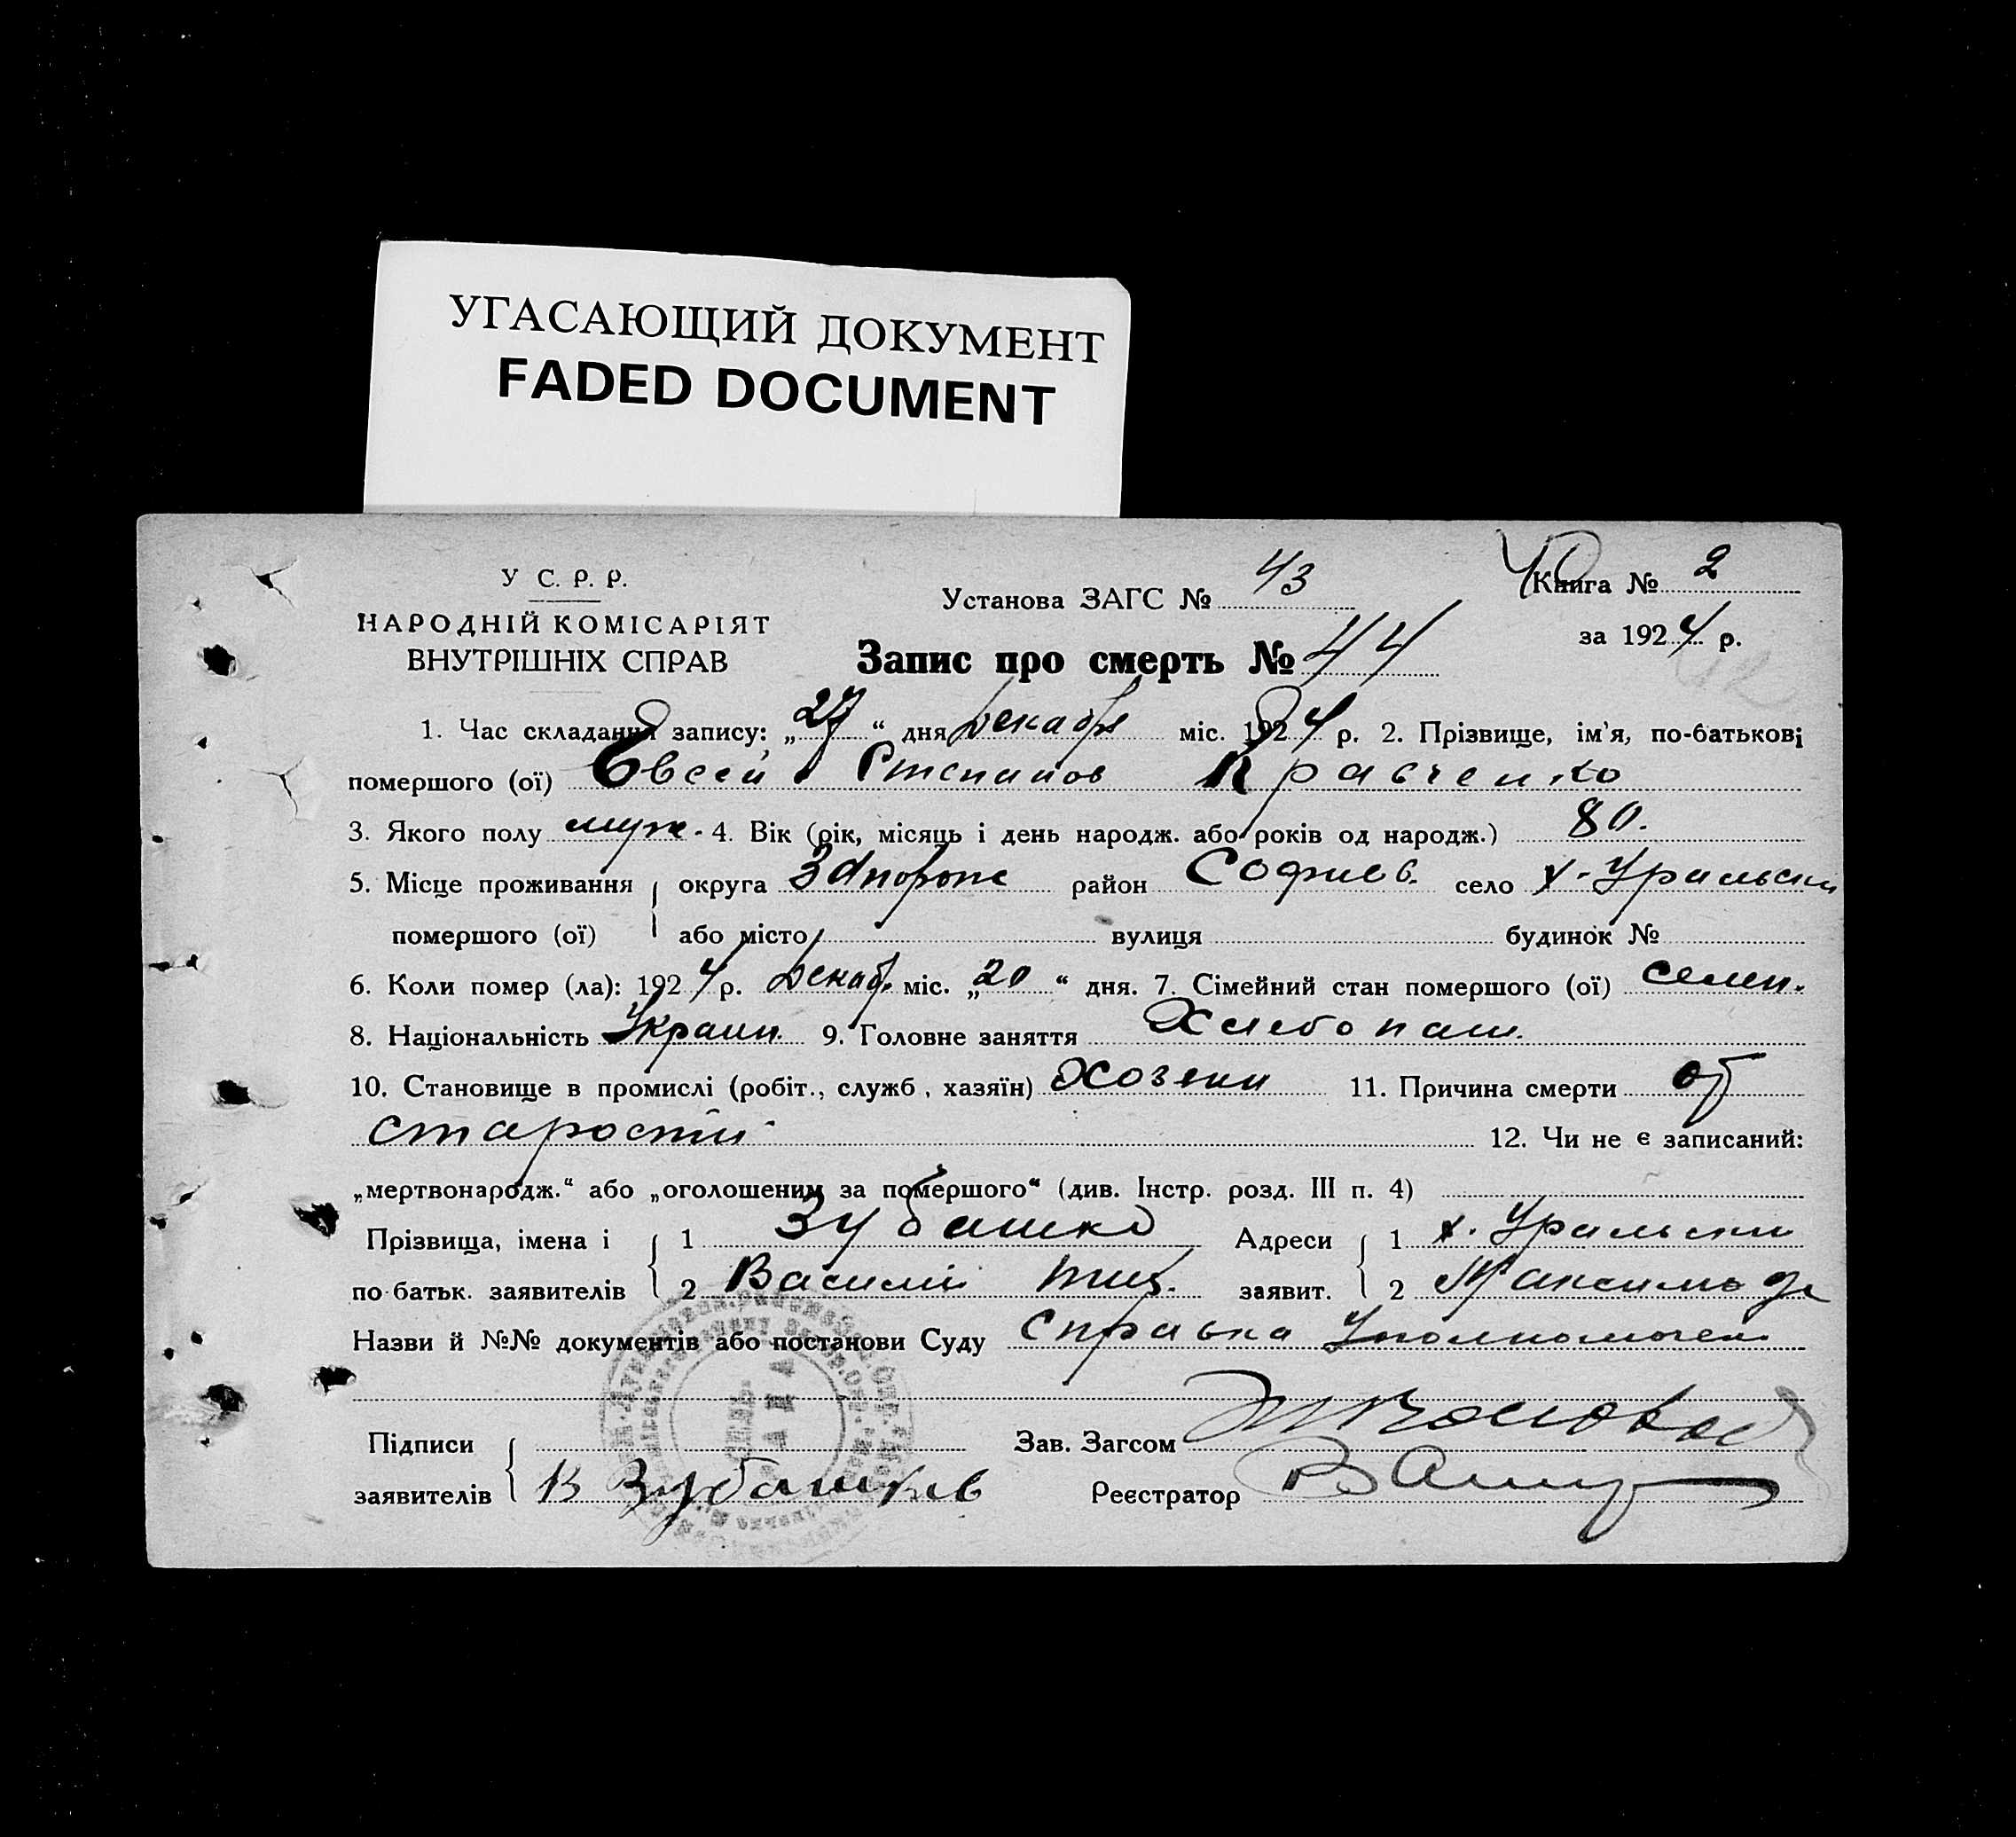 УГАСАЮЩИЙ ДОКУМЕНТ
FADED DOCUMENT
У С. Р. Р.
НАРОДНІЙ КОМІСАРІЯТ
ВНУТРІШНІХ СПРАВ
Установа ЗАГС № 43
Книга № 2
за 1924 р.
Запис про смерть № 44
1. Час складання запису: „27“ дня Декабря міс. 1924 р. 2. Прізвище, ім'я, по-батькові
помершого (ої) Евсей Степанов Кравченко
3. Якого полу муж. 4. Вік (рік, місяць і день народж. або років од народж.) 80.
5. Місце проживання округа Запорож район Софиев. село х. Уральски
помершого (ої) або місто вулиця будинок №
6. Коли помер (ла): 1924 р. Декаб. міс. „20“ дня. 7. Сімейний стан помершого (ої) семен.
8. Національність Украин. 9. Головне заняття Хлебопаш.
10. Становище в промислі (робіт., служб, хазяїн) Хозяин 11. Причина смерти от
старости 12. Чи не є записаний:
„мертвонародж.“ або „оголошеним за помершого“ (див. Інстр. розд. III п. 4)
Прізвища, імена і 1 Зубашко Адреси 1 х. Уральски
по батьк. заявителів 2 Василий заявит. 2
Назви й №№ документів або постанови Суду Справка Уполномочен
Підписи Зав. Загсом
заявителів В Зубашков Реєстратор